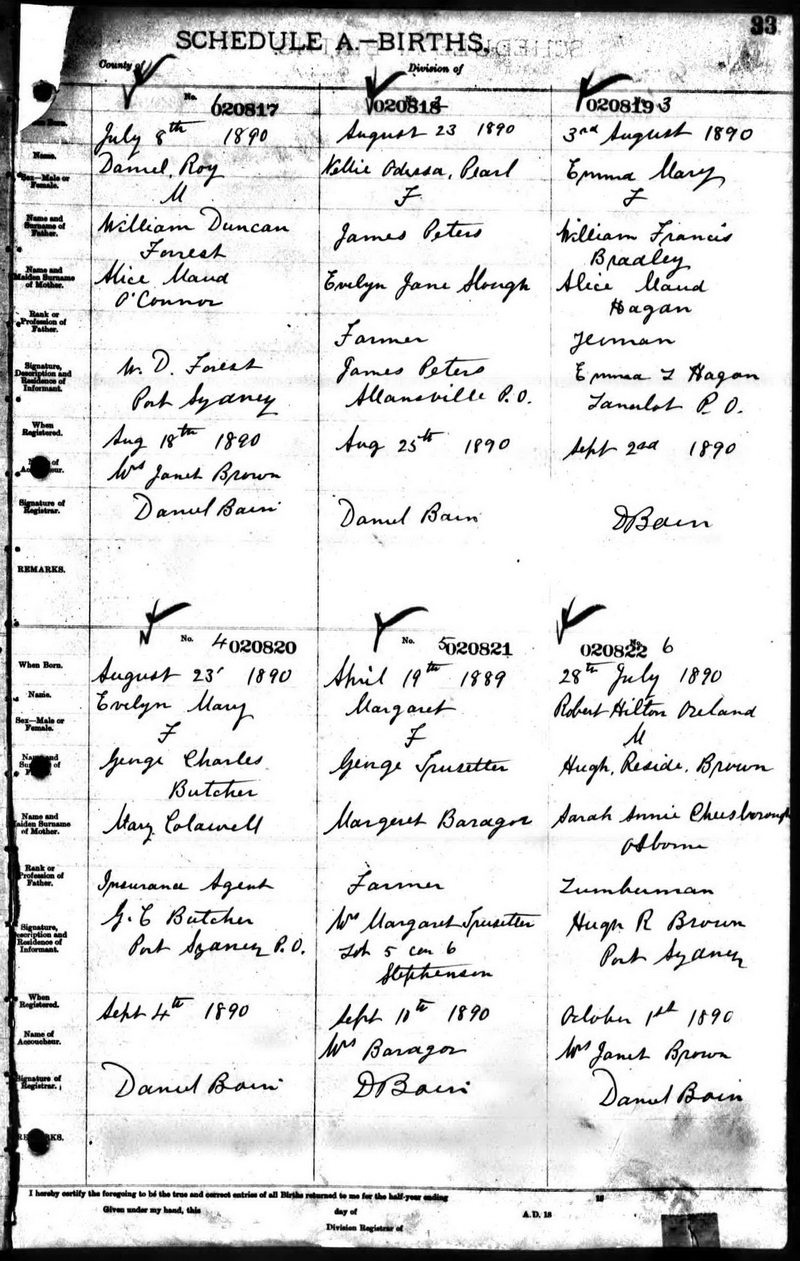 33
SCHEDULE A.—BIRTHS.
County of
Division of
No. 6
020817
020818
020819 3
July 8th 1890
August 23 1890
3rd August 1890
Name.
Daniel, Roy
Nellie Odessa, Pearl
Emma Mary
Sex—Male or
Female.
M
F
F
Name and
Surname of
Father.
William Duncan
Forrest
James Peters
William Francis
Bradley
Name and
Maiden Surname
of Mother.
Alice Maud
O'Connor
Evelyn Jane Slough
Alice Maud
Hagan
Rank or
Profession of
Father.
Farmer
Yeoman
Signature,
Description and
Residence of
Informant.
W. D. Forest
Port Sydney
James Peters
Allansville P.O.
Emma Hagan
P. O.
When
Registered.
Aug 18th 1890
Aug 25th 1890
Sept 2nd 1890
Mrs Janet Brown
Signature of
Registrar.
Daniel Bain
Daniel Bain
D Bain
REMARKS.
No. 4 020820
No. 5 020821
020822 6
When Born.
August 23 1890
April 19th 1889
28th July 1890
Name.
Evelyn Mary
Margaret
Robert Hilton Orland
Sex—Male or
Female.
F
F
M
George Charles
Butcher
George Trusetter
Hugh, Reside, Brown
Name and
Maiden Surname
of Mother.
Mary Colawell
Margeret Baragor
Sarah Annie Cheesborough
Osborne
Rank or
Profession of
Father.
Insurance Agent
Farmer
Lumberman
Signature,
Description and
Residence of
Informant.
G. C Butcher
Port Sydney P.O.
Mrs Margaret Trusetter
Lot 5 con 6
Stephenson
Hugh R Brown
Port Sydney
When
Registered.
Sept 4th 1890
Sept 10th 1890
October 1st 1890
Name of
Accoucheur.
Mrs Baragor
Mrs Janet Brown
Signature of
Registrar.
Daniel Bain
D Bain
Daniel Bain
I hereby certify the foregoing to be the true and correct entries of all Births returned to me for the half-year ending 18
Given under my hand, this day of A.D. 18
Division Registrar of